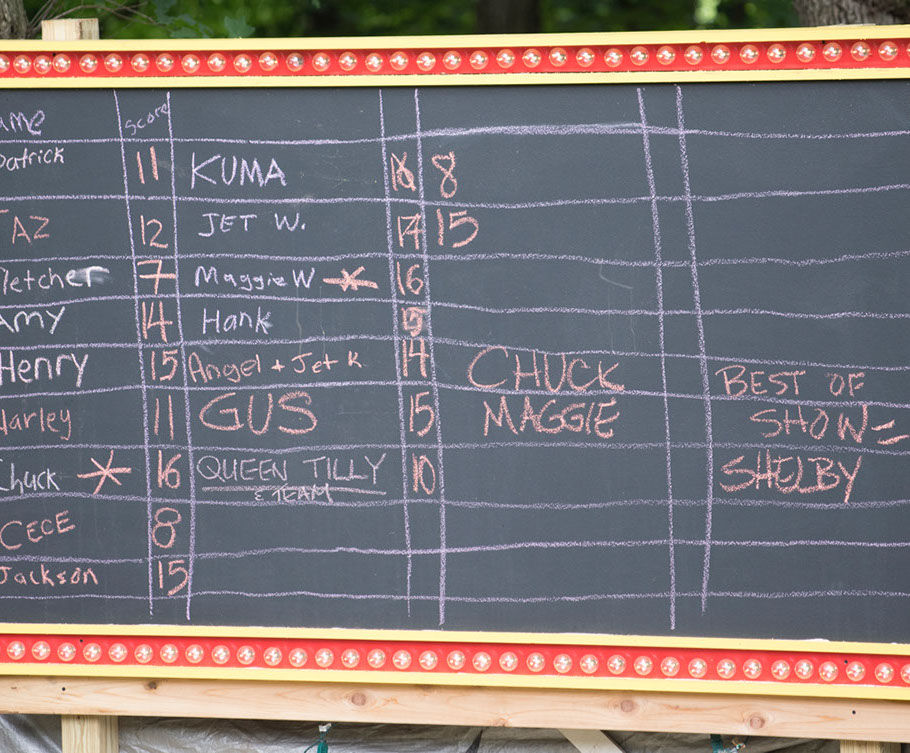 ame Score
Patrick 11 KUMA 8
TAZ 12 JET W. 15
letcher 7 Maggie W * 16
Amy 14 Hank
Henry 15 Angel + Jet K 14 CHUCK BEST OF
Harley 11 GUS 15 MAGGIE SHOW =
Chuck * 16 QUEEN TILLY 10 SHELBY
& TEAM
CECE 8
Jackson 15